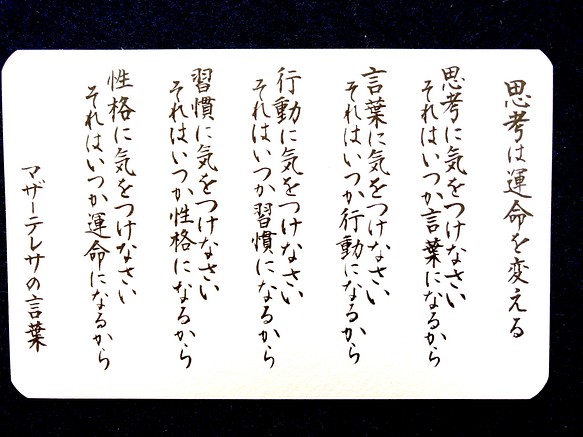 思考は運命を変える
思考に気をつけなさい
それはいつか言葉になるから
言葉に気をつけなさい
それはいつか行動になるから
行動に気をつけなさい
それはいつか習慣になるから
習慣に気をつけなさい
それはいつか性格になるから
性格に気をつけなさい
それはいつか運命になるから
マザーテレサの言葉